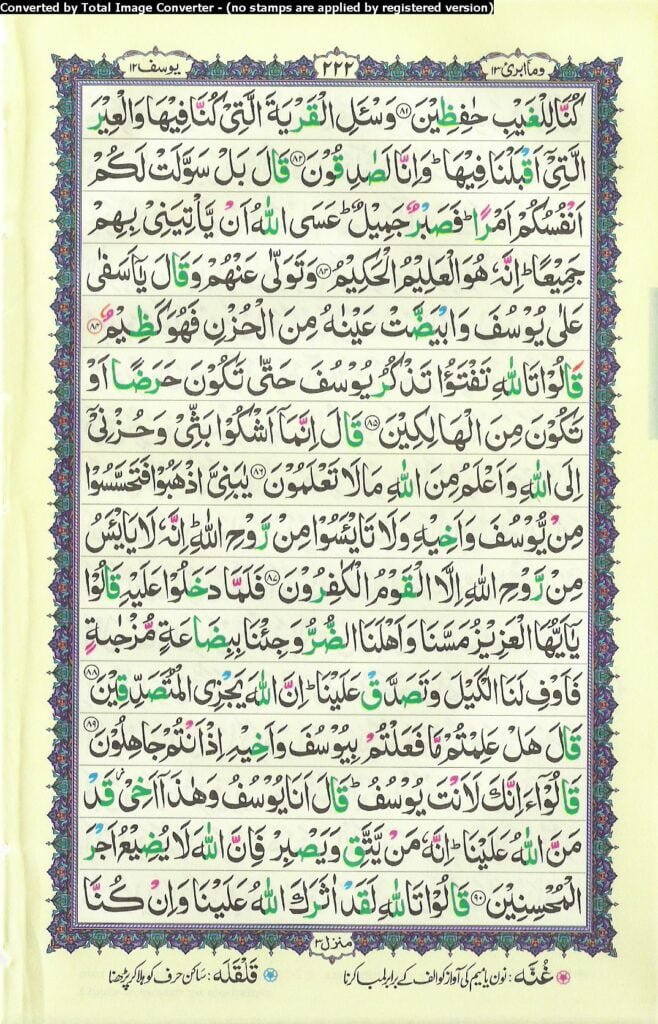 Converted by Total Image Converter - (no stamps are applied by registered version)
وماابرئ ١٣
٢٢٢
يوسف ١٢
كُنَّا لِلْغَيْبِ حٰفِظِيْنَ ٨١ وَسْئَلِ الْقَرْيَةَ الَّتِيْ كُنَّا فِيْهَا وَالْعِيْرَ
الَّتِيْٓ اَقْبَلْنَا فِيْهَا ؕ وَاِنَّا لَصٰدِقُوْنَ ٨٢ قَالَ بَلْ سَوَّلَتْ لَكُمْ
اَنْفُسُكُمْ اَمْرًا ؕ فَصَبْرٌ جَمِيْلٌ ؕ عَسَى اللّٰهُ اَنْ يَّاْتِيَنِيْ بِهِمْ
جَمِيْعًا ؕ اِنَّهٗ هُوَ الْعَلِيْمُ الْحَكِيْمُ ٨٣ وَتَوَلّٰى عَنْهُمْ وَقَالَ يٰٓاَسَفٰى
عَلٰى يُوْسُفَ وَابْيَضَّتْ عَيْنٰهُ مِنَ الْحُزْنِ فَهُوَ كَظِيْمٌ ٨٤
قَالُوْا تَاللّٰهِ تَفْتَؤُا تَذْكُرُ يُوْسُفَ حَتّٰى تَكُوْنَ حَرَضًا اَوْ
تَكُوْنَ مِنَ الْهَالِكِيْنَ ٨٥ قَالَ اِنَّمَآ اَشْكُوْا بَثِّيْ وَحُزْنِيْٓ
اِلَى اللّٰهِ وَاَعْلَمُ مِنَ اللّٰهِ مَا لَا تَعْلَمُوْنَ ٨٦ يٰبَنِيَّ اذْهَبُوْا فَتَحَسَّسُوْا
مِنْ يُّوْسُفَ وَاَخِيْهِ وَلَا تَايْئَسُوْا مِنْ رَّوْحِ اللّٰهِ ؕ اِنَّهٗ لَا يَايْئَسُ
مِنْ رَّوْحِ اللّٰهِ اِلَّا الْقَوْمُ الْكٰفِرُوْنَ ٨٧ فَلَمَّا دَخَلُوْا عَلَيْهِ قَالُوْا
يٰٓاَيُّهَا الْعَزِيْزُ مَسَّنَا وَاَهْلَنَا الضُّرُّ وَجِئْنَا بِبِضَاعَةٍ مُّزْجٰىةٍ
فَاَوْفِ لَنَا الْكَيْلَ وَتَصَدَّقْ عَلَيْنَا ؕ اِنَّ اللّٰهَ يَجْزِي الْمُتَصَدِّقِيْنَ ٨٨
قَالَ هَلْ عَلِمْتُمْ مَّا فَعَلْتُمْ بِيُوْسُفَ وَاَخِيْهِ اِذْ اَنْتُمْ جَاهِلُوْنَ ٨٩
قَالُوْٓا ءَاِنَّكَ لَاَنْتَ يُوْسُفُ ؕ قَالَ اَنَا يُوْسُفُ وَهٰذَآ اَخِيْ ؗ قَدْ
مَنَّ اللّٰهُ عَلَيْنَا ؕ اِنَّهٗ مَنْ يَّتَّقِ وَيَصْبِرْ فَاِنَّ اللّٰهَ لَا يُضِيْعُ اَجْرَ
الْمُحْسِنِيْنَ ٩٠ قَالُوْا تَاللّٰهِ لَقَدْ اٰثَرَكَ اللّٰهُ عَلَيْنَا وَاِنْ كُنَّا
منزل ٣
غُنَّه: نون یا میم کی آواز کو الف کے برابر لمبا کرنا
قَلْقَلَه: ساکن حرف کو ہلا کر پڑھنا